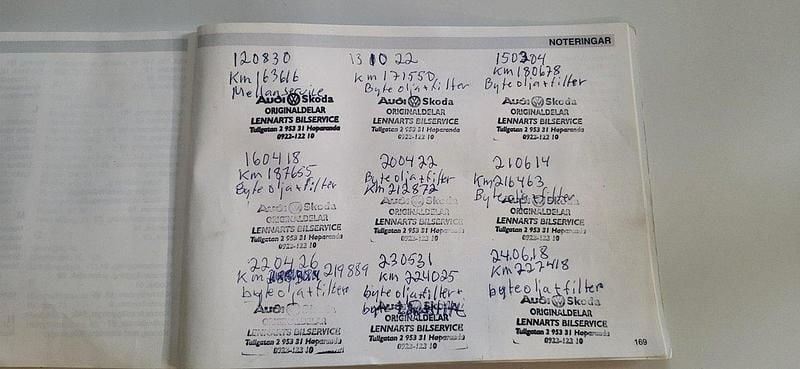 NOTERINGAR
120830
Km 163616
Mellanservice
Audi Skoda
ORIGINALDELAR
LENNARTS BILSERVICE
Tullgatan 2 953 31 Haparanda
0922-122 10
131022
Km 171550
Byte olja+filter
Audi Skoda
ORIGINALDELAR
LENNARTS BILSERVICE
Tullgatan 2 953 31 Haparanda
0922-122 10
150204
Km 180678
Byte olja+filter
Audi Skoda
ORIGINALDELAR
LENNARTS BILSERVICE
Tullgatan 2 953 31 Haparanda
0922-122 10
160418
Km 187655
Byte olja+filter
Audi Skoda
ORIGINALDELAR
LENNARTS BILSERVICE
Tullgatan 2 953 31 Haparanda
0922-122 10
200422
Byte olja+filter
Km 212872
Audi Skoda
ORIGINALDELAR
LENNARTS BILSERVICE
Tullgatan 2 953 31 Haparanda
0922-122 10
210614
Km 216463
Byte olja+filter
Audi Skoda
ORIGINALDELAR
LENNARTS BILSERVICE
Tullgatan 2 953 31 Haparanda
0922-122 10
220426
Km 219889
byte olja+filter
Audi Skoda
ORIGINALDELAR
LENNARTS BILSERVICE
Tullgatan 2 953 31 Haparanda
0922-122 10
230531
Km 224025
byte olja+filter+
byte
Audi Skoda
ORIGINALDELAR
LENNARTS BILSERVICE
Tullgatan 2 953 31 Haparanda
0922-122 10
240618
Km 227418
byte olja+filter
Audi Skoda
ORIGINALDELAR
LENNARTS BILSERVICE
Tullgatan 2 953 31 Haparanda
0922-122 10
169